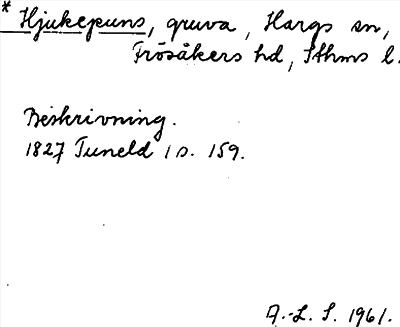 * Hjukepuns, gruva, Hargs sn,
Frösåkers hd, Sthms l.
Beskrivning.
1827 Tuneld 1 s. 159.
A.-L. S. 1961.